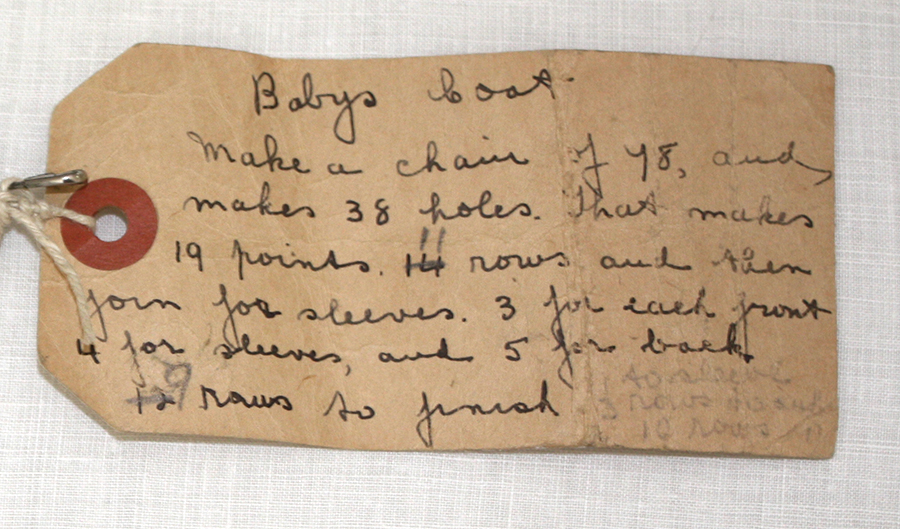 Babys Coat
Make a chain of 78, and
makes 38 holes. That makes
19 points. 14 11 rows and then
join for sleeves. 3 for each front
4 for sleeves, and 5 for back
12 9 rows to finish
to sleeve
3 rows
10 rows